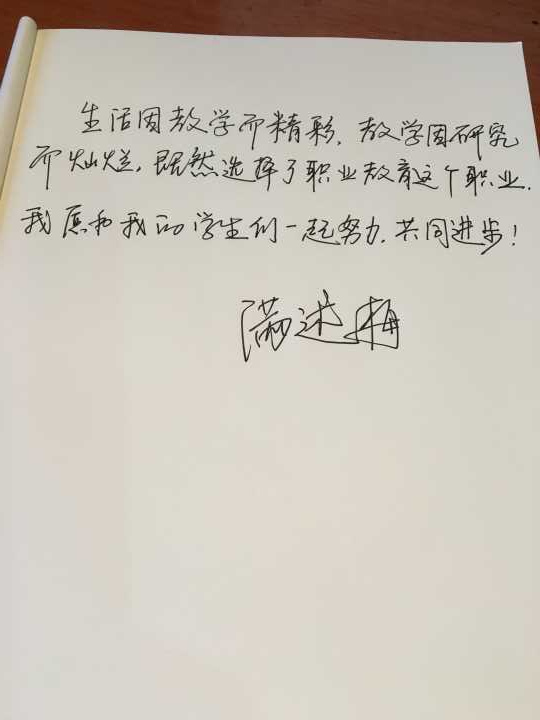 生活因教学而精彩，教学因研究
而灿烂，既然选择了职业教育这个职业，
我愿和我的学生们一起努力，共同进步！
满述梅